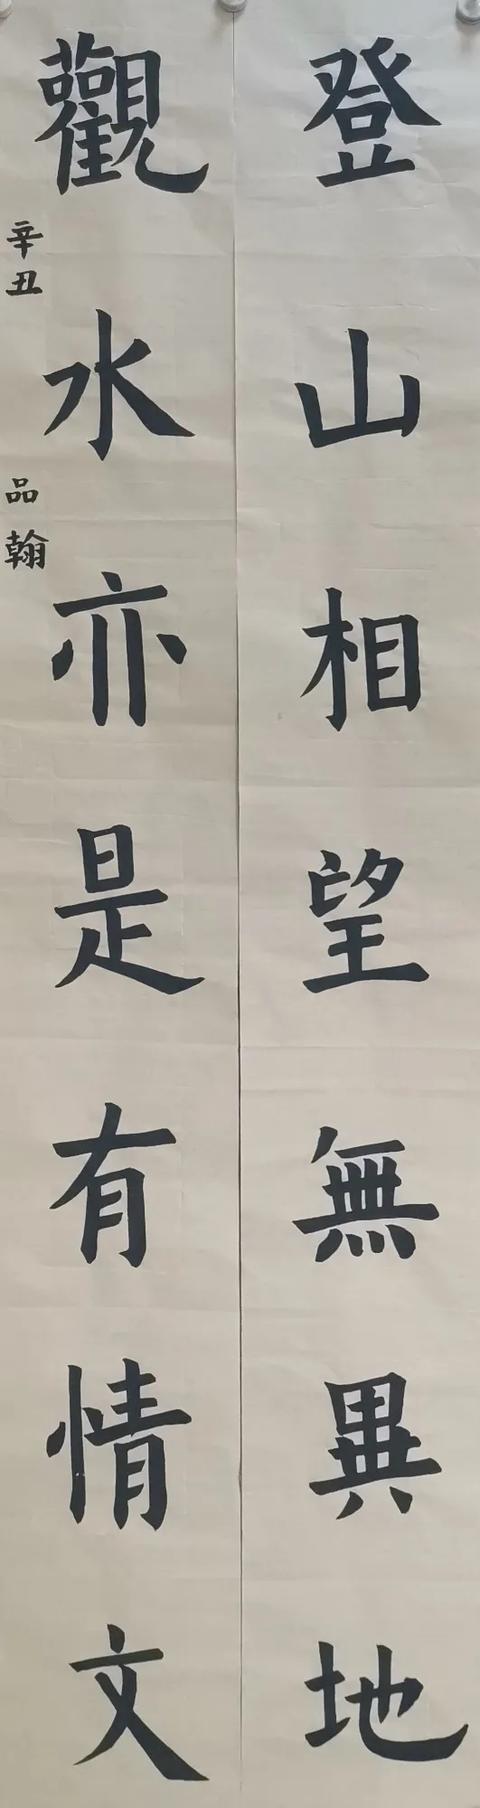 登山相望無異地
觀水亦是有情文
辛丑 品翰